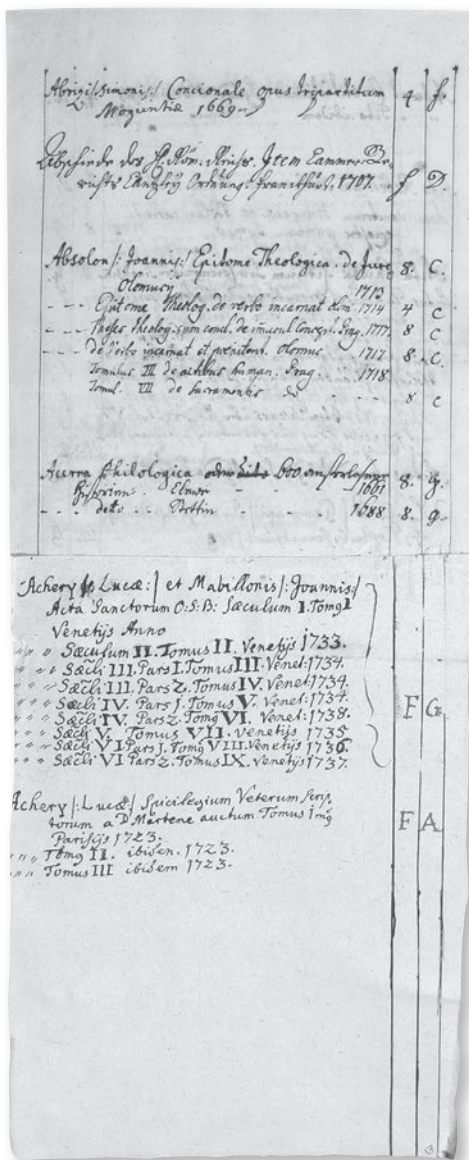 Abrigi /:Simonis:/ Concionale opus tripartitum 4 f.
Moguntiæ 1669.
Abschiede des H. Röm. Reichs. Item Cammer Ge-
richts Cantzley Ordnung. Franckfurt. 1707. f D.
Absolon /: Joannis:/ Epitome Theologica. de Jure 8. C.
Olomucij 1713
- - - Epitome Theolog. de verbo incarnat Olm. 1714 4 C
- - - Theses Theolog. cum concl. de imacul Concep. Prag. 1717. 8 C
- - - de Verbo incarnat et pœnitent. Olomus 1717 8. C.
Tomulus III de actibus human. Prag. 1718
Tomul. VII de Sacramentis do - - - 8 C
Acerra Philologica 600
Historien. - 1661 8. g.
- - - deto - - Stettin - - 1688 8. g.
Achery /: Lucæ:/ et Mabillonis /: Joannis:/
Acta Sanctorum O:S:B: Sæculum I. Tomg I
Venetijs Anno
" " " Sæculum II. Tomus II. Venetijs 1733.
" " " Sæcli III. Pars I. Tomus III. Venet: 1734.
" " " Sæcli III. Pars 2. Tomus IV. Venet: 1734.
" " " Sæcli IV. Pars 1. Tomus V. Venet: 1734. F G.
" " " Sæcli IV. Pars 2. Tomg VI. Venet: 1738.
" " " Sæcli V. Tomus VII. Venetijs 1735
" " " Sæcli VI. Pars 1. Tomg VIII. Venetijs 1736.
" " " Sæcli VI Pars 2. Tomus IX. Venetijs 1737.
Achery /: Lucæ:/ Spicilegium Veterum Scrip-
torum a D. Martene auctum Tomus Img F A.
Parisijs 1723.
" " " Tomg II. ibiden. 1723.
" " " Tomus III ibidem 1723.